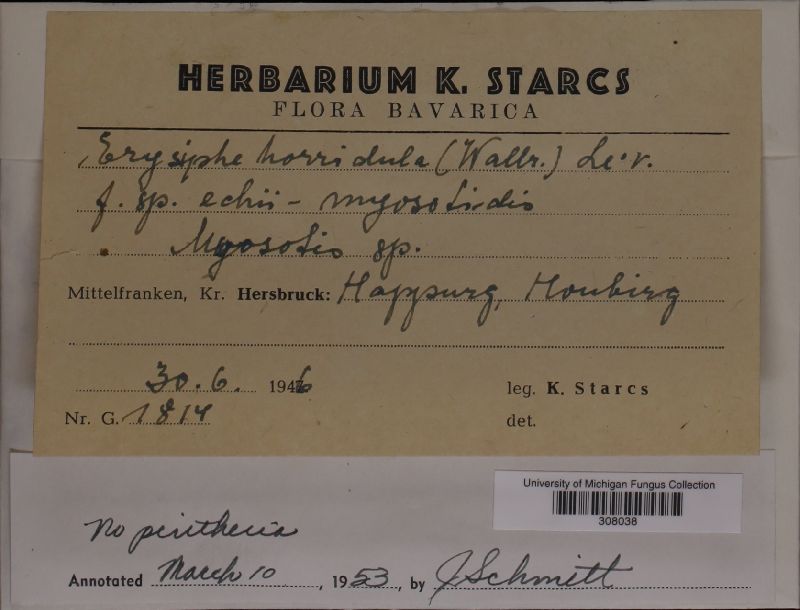 HERBARIUM K. STARCS
FLORA BAVARICA
Erysiphe horridula (Wallr.) Lév.
f. sp. echii - myosotidis
Myosotis sp.
Mittelfranken, Kr. Hersbruck: Happurg, Houbirg
30. 6. 1946 leg. K. Starcs
Nr. G. 1814 det.
University of Michigan Fungus Collection
308038
No perithecia
Annotated March 10, 1953, by J Schmitt